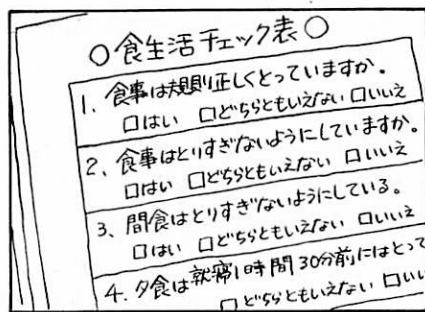 ○食生活チェック表○
1. 食事は規則正しくとっていますか。
□はい □どちらともいえない □いいえ
2. 食事はとりすぎないようにしていますか。
□はい □どちらともいえない □いいえ
3. 間食はとりすぎないようにしている。
□はい □どちらともいえない □いいえ
4. 夕食は就寝1時間30分前にはとって
□どちらともいえない □いい